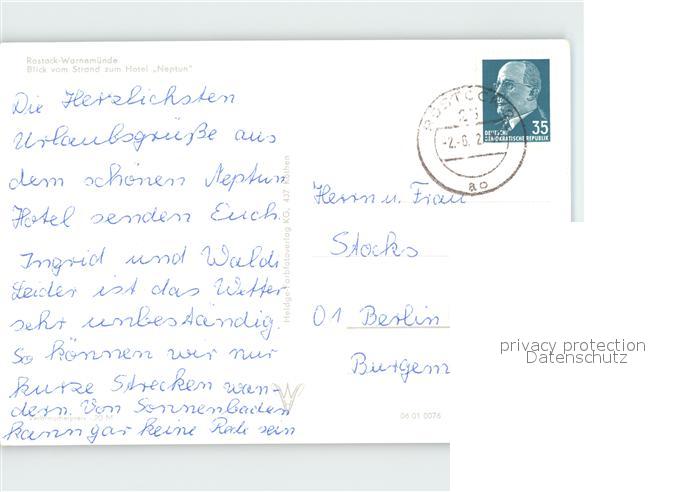 Rostock-Warnemünde
Blick vom Strand zum Hotel „Neptun"
Die Herzlichsten
Urlaubsgrüße aus
dem schönen Neptun
Hotel senden Euch
Ingrid und Waldi
Leider ist das Wetter
sehr unbeständig.
So können wir nur
kurze Strecken wan-
dern. Von Sonnenbaden
kann gar keine Rede sein
437 Köthen
ROSTOCK
25
-2.-8.
ao
DEUTSCHE
DEMOKRATISCHE REPUBLIK
35
Herrn u. Frau
Stocks
01 Berlin
Burgem
06 01 0076
privacy protection
Datenschutz